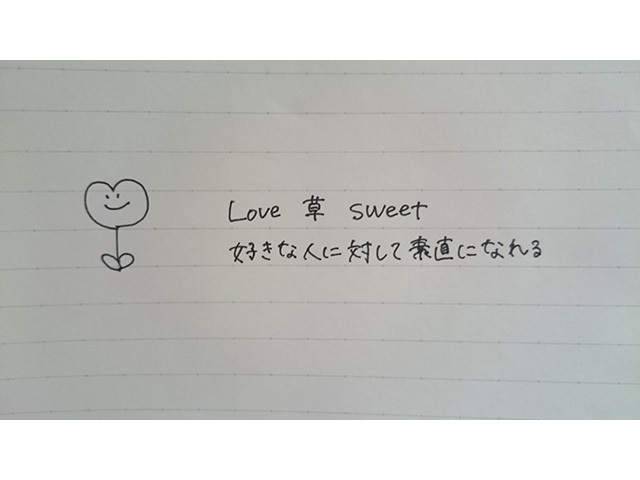 Love 草 sweet
好きな人に対して素直になれる